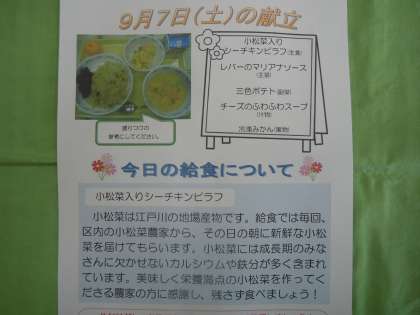 9月7日(土)の献立
小松菜入り
シーチキンピラフ(主食)
レバーのマリアナソース
(主菜)
三色ポテト(副菜)
チーズのふわふわスープ
(汁物)
冷凍みかん(果物)
盛りつけの
参考にしてください。
今日の給食について
小松菜入りシーチキンピラフ
小松菜は江戸川の地場産物です。給食では毎回、
区内の小松菜農家から、その日の朝に新鮮な小松
菜を届けてもらいます。小松菜には成長期のみな
さんに欠かせないカルシウムや鉄分が多く含まれ
ています。美味しく栄養満点の小松菜を作ってく
ださる農家の方に感謝し、残さず食べましょう！